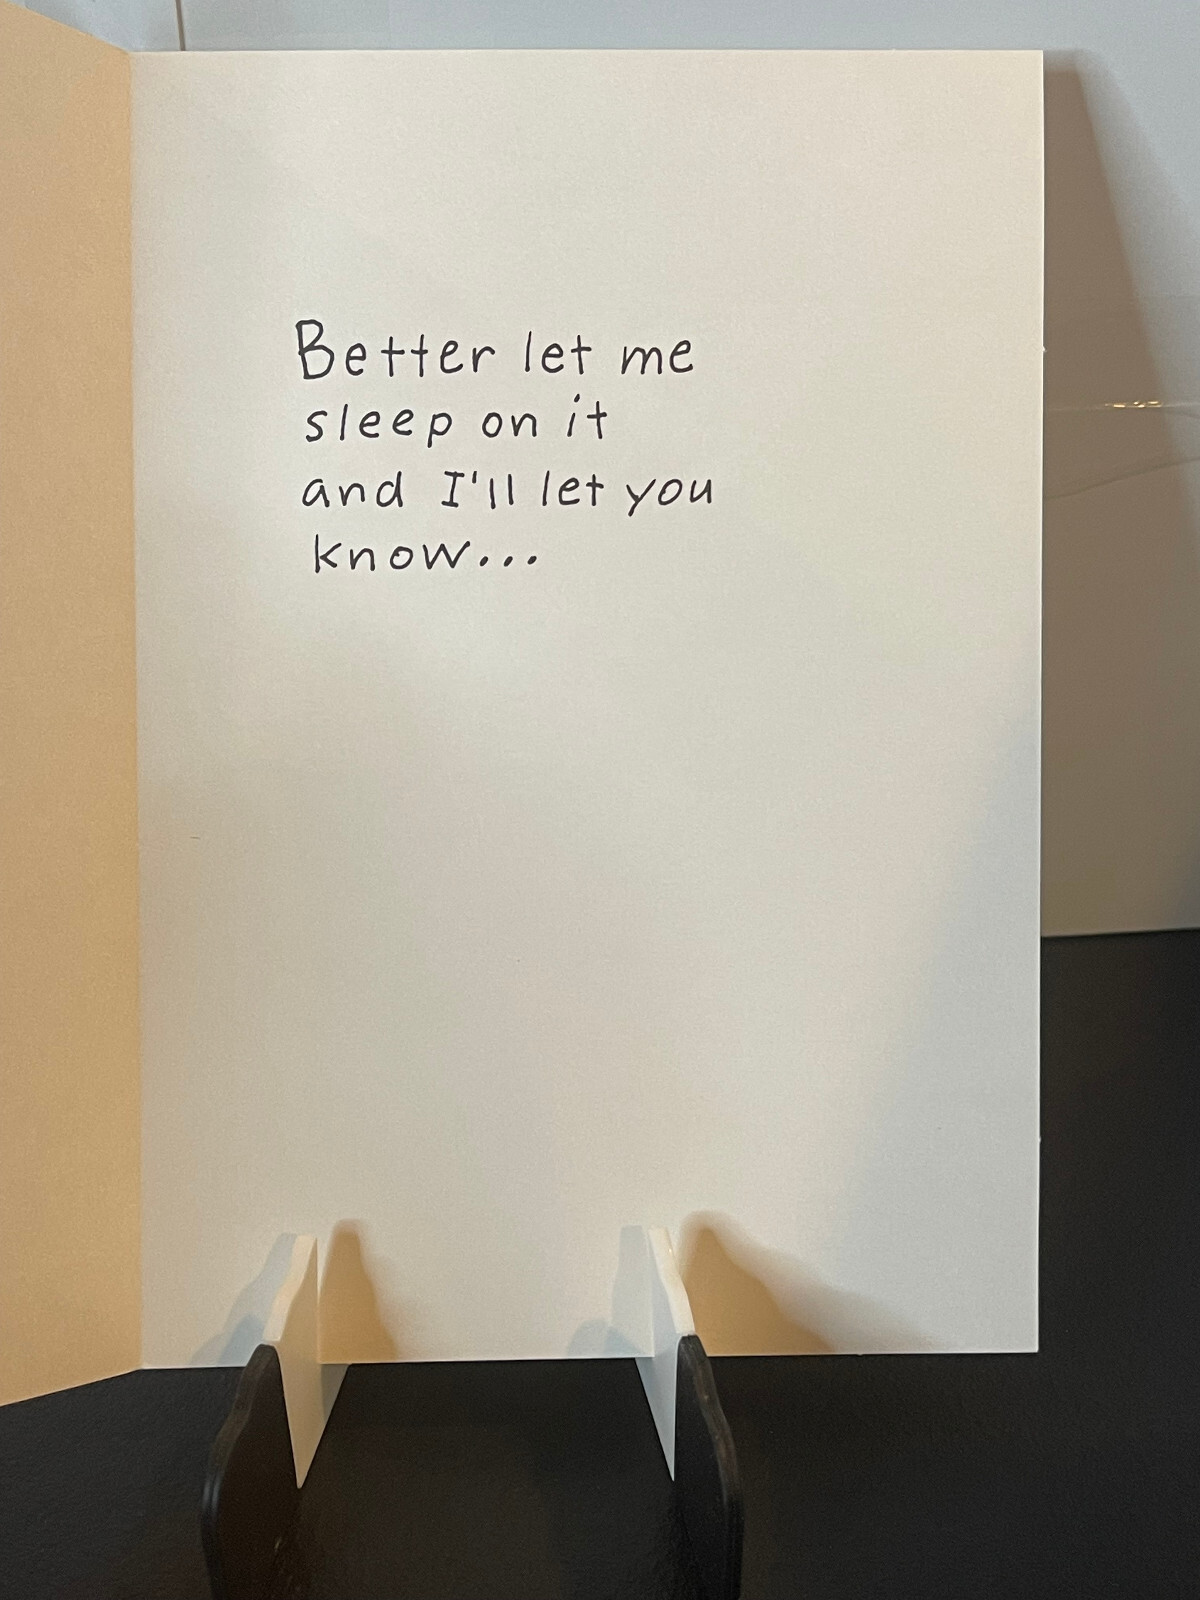 Better let me
sleep on it
and I'll let you
know...